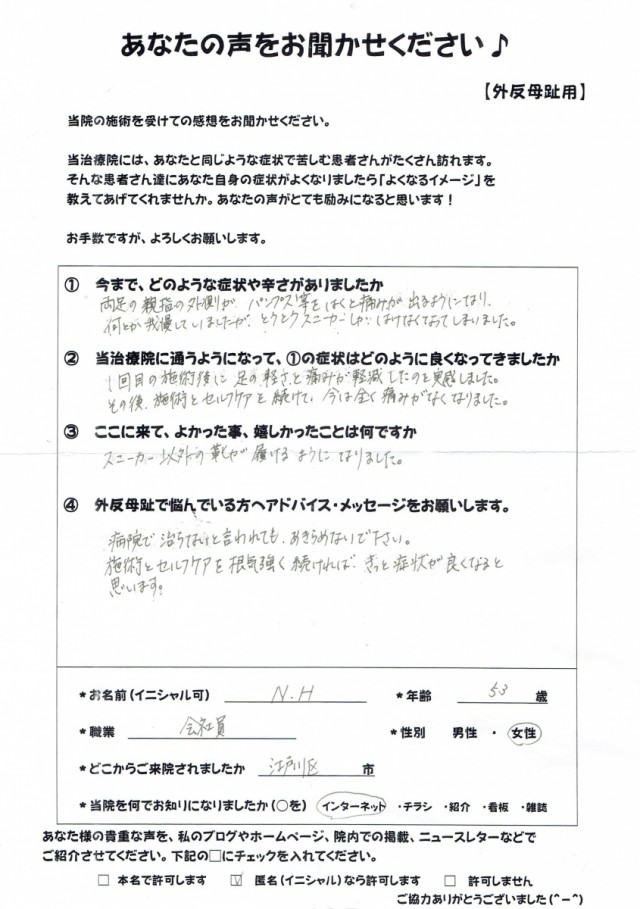 あなたの声をお聞かせください♪
【外反母趾用】
当院の施術を受けての感想をお聞かせください。
当治療院には、あなたと同じような症状で苦しむ患者さんがたくさん訪れます。
そんな患者さん達にあなた自身の症状がよくなりましたら「よくなるイメージ」を
教えてあげてくれませんか。あなたの声がとても励みになると思います！
お手数ですが、よろしくお願いします。
① 今まで、どのような症状や辛さがありましたか
両足の親指の外側が、パンプス等をはくと痛みが出るようになり、
何とか我慢していましたが、とうとうスニーカーしかはけなくなってしまいました。
② 当治療院に通うようになって、①の症状はどのように良くなってきましたか
1回目の施術後に足の軽さと痛みが軽減したのを実感しました。
その後、施術とセルフケアを続けて、今は全く痛みがなくなりました。
③ ここに来て、よかった事、嬉しかったことは何ですか
スニーカー以外の靴が履けるようになりました。
④ 外反母趾で悩んでいる方へアドバイス・メッセージをお願いします。
病院で治らないと言われても、あきらめないで下さい。
施術とセルフケアを根気強く続ければ、きっと症状が良くなると
思います。
*お名前（イニシャル可） N.H *年齢 53 歳
*職業 会社員 *性別 男性 ・ 女性
*どこからご来院されましたか 江戸川区 市
*当院を何でお知りになりましたか（○を） インターネット ・チラシ ・紹介 ・看板 ・雑誌
あなた様の貴重な声を、私のブログやホームページ、院内での掲載、ニュースレターなどで
ご紹介させてください。下記の□にチェックを入れてください。
□ 本名で許可します ☑ 匿名（イニシャル）なら許可します □ 許可しません
ご協力ありがとうございました（^－^）